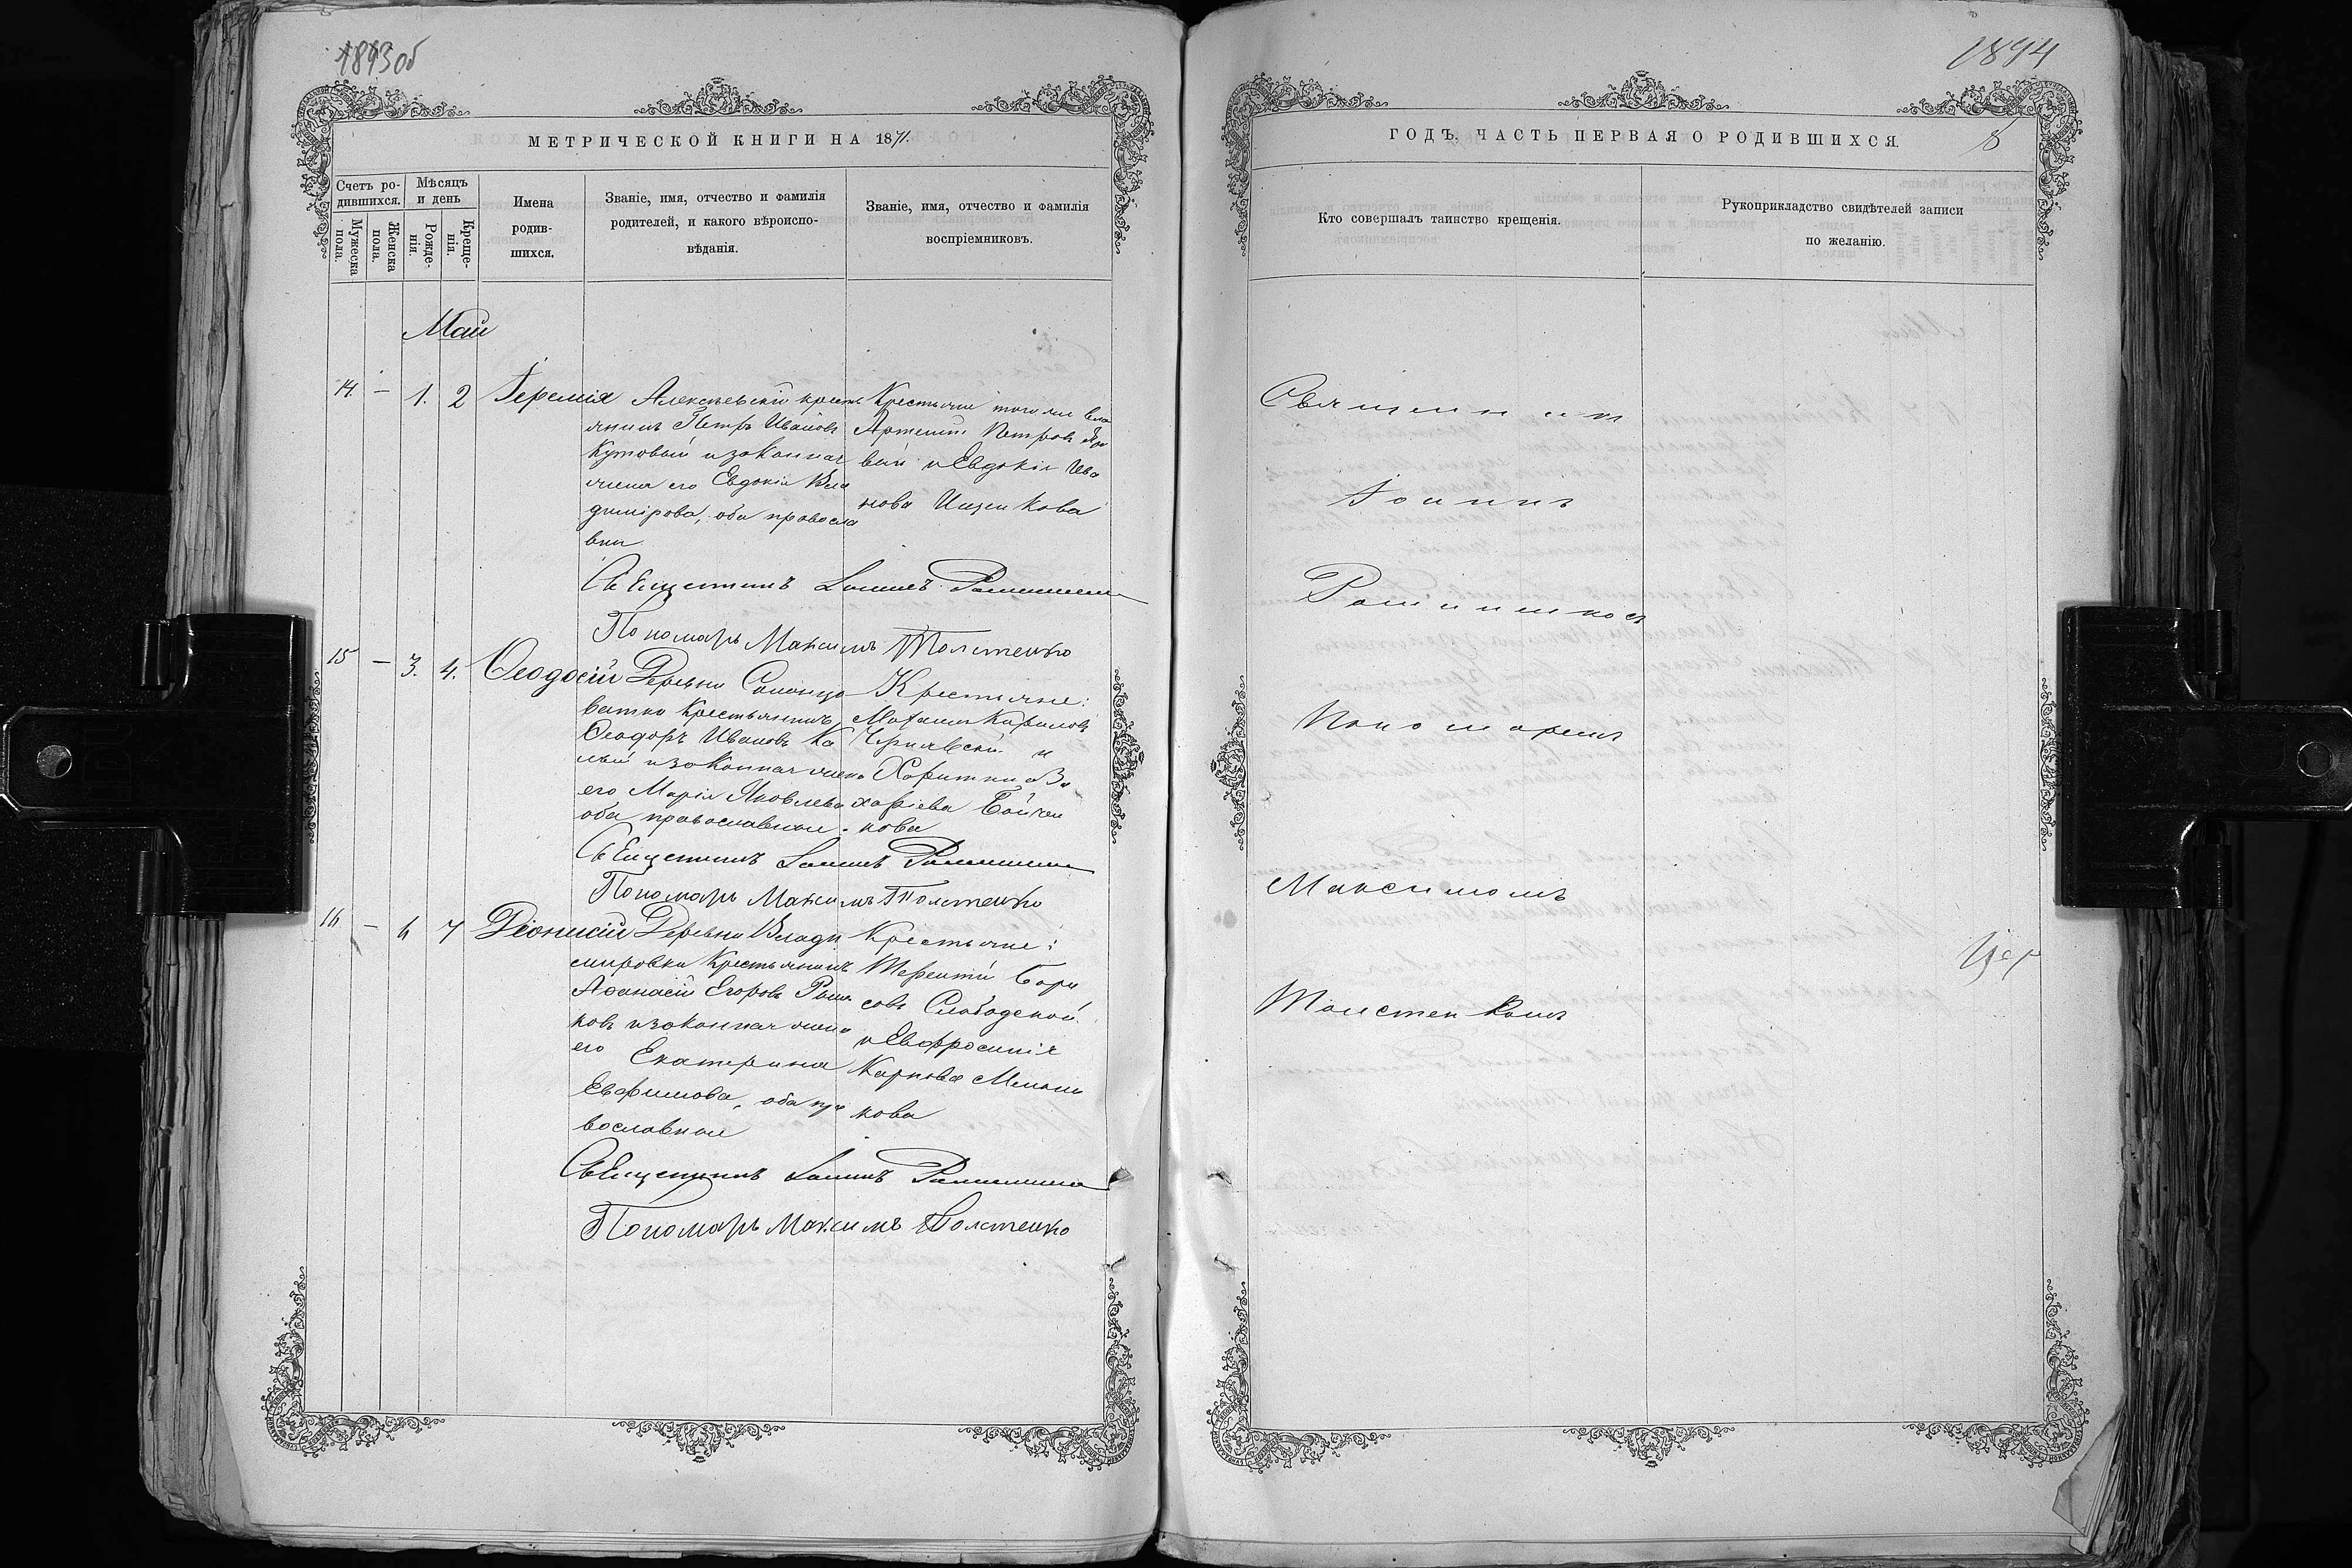 1893об
МЕТРИЧЕСКОЙ КНИГИ НА 1871.
Счетъ ро-
дившихся.
Мужеска
пола.
Женска
пола.
Мѣсяцъ
и день
Рожде-
нія.
Креще-
нія.
Имена
родив-
шихся.
Званіе, имя, отчество и фамилія
родителей, и какого вѣроиспо-
вѣданія.
Званіе, имя, отчество и фамилія
воспріемниковъ.
Май
14. – 1. 2 Іеремія
Алексѣевскій крест
янинъ Петръ Ивановъ
Кутовый и законная
жена его Евдокія Вла
димірова, оба правосла
вны
Крестьяне того же
Артемій Петровъ
вый и Евдокія Ива
нова Ищенкова
Священникъ Іоаннъ
Пономарь Максимъ Толстенко
15 – 3. 4. Ѳеодосій
Деревни Солонцо
ватки Крестьянинъ
Ѳеодоръ Ивановъ Ка
лый и законная жена
его Марія Яковлева
оба православные.
Крестьяне:
Чернявскій и
Харитина За
харіева Бойчен
кова
Священникъ Іоаннъ
Пономарь Максимъ Толстенко
16 – 6 7 Діонисій
Деревни Влади
мировки Крестьянинъ
Аѳанасій Егоровъ
ковъ и законная жена
его Екатерина
Евфимова, оба пра
вославные
Крестьяне:
Терентій Бори
совъ Слободской
и Евфросинія
Карпова
кова
Священникъ Іоаннъ
Пономарь Максимъ Толстенко
1894
ГОДЪ, ЧАСТЬ ПЕРВАЯ О РОДИВШИХСЯ.
Кто совершалъ таинство крещенія.
Рукоприкладство свидѣтелей записи
по желанію.
Священникъ
Іоаннъ
Пономаремъ
Максимомъ
Толстенкомъ
Цер